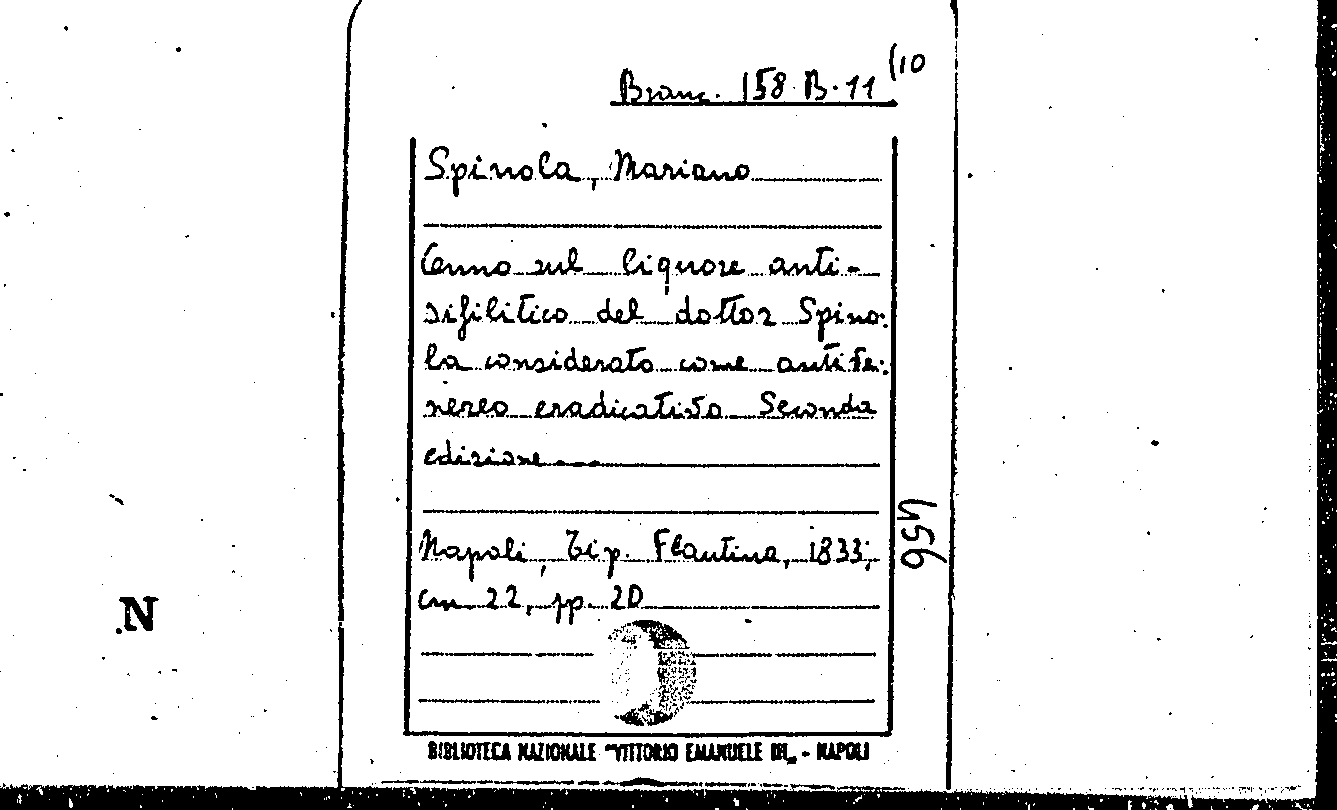 Branc. 158 B. 11 (10
Spinola, Mariano
Cenno sul liquore anti-
sifilitico del dottor Spino:
la considerato come antive:
nereo eradicativo Seconda
edizione
Napoli, Tip. Flautina, 1833;
cm. 22, pp. 20
456
N
BIBLIOTECA NAZIONALE "VITTORIO EMANUELE III„ - NAPOLI